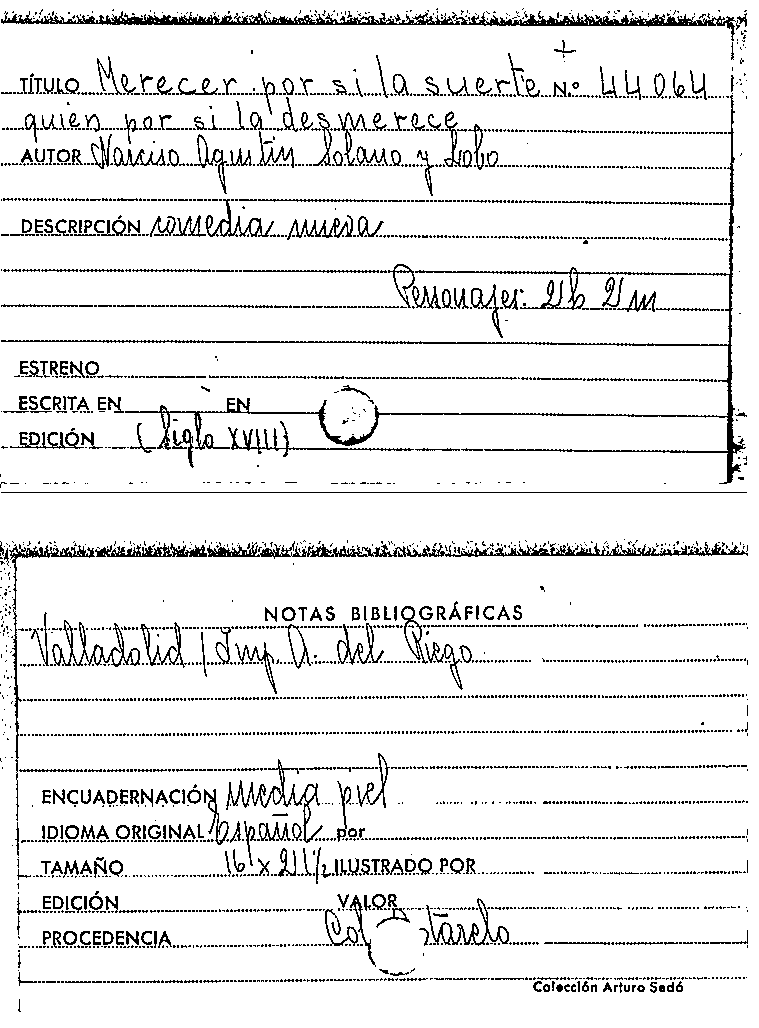 +
TÍTULO Merecer por si la suerte N.º 44064
quien por si la desmerece
AUTOR Narciso Agustin Solano y Lobo
DESCRIPCIÓN comedia nueva
Personajes: 21h 21m
ESTRENO
ESCRITA EN EN
EDICIÓN (Siglo XVIII)
NOTAS BIBLIOGRÁFICAS
Valladolid / Imp A. del Riego
ENCUADERNACIÓN media piel
IDIOMA ORIGINAL Español por
TAMAÑO 16 x 21 1/2 ILUSTRADO POR
EDICIÓN VALOR
PROCEDENCIA Col tarelo
Colección Arturo Sedó